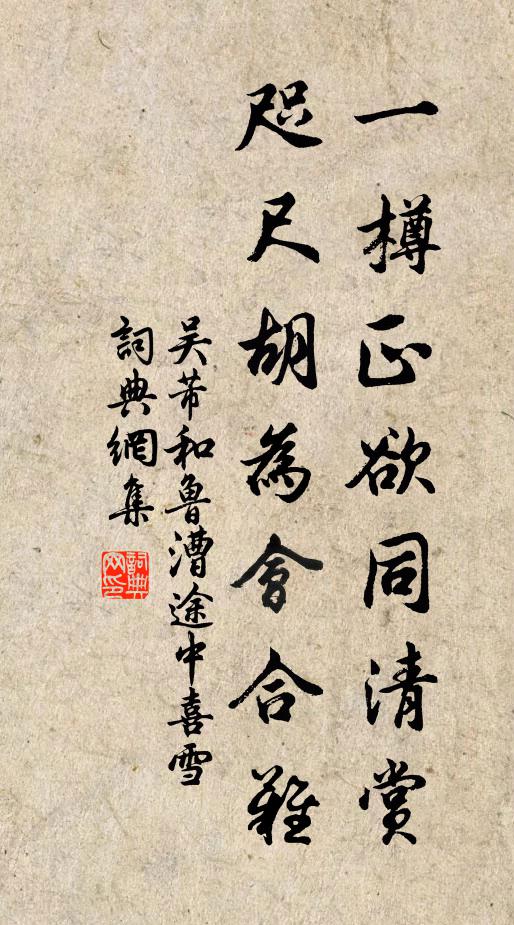 一樽正欲同清赏
咫尺胡為會合難
吴芾和魯漕途中喜雪
詞典網集
詞典网印